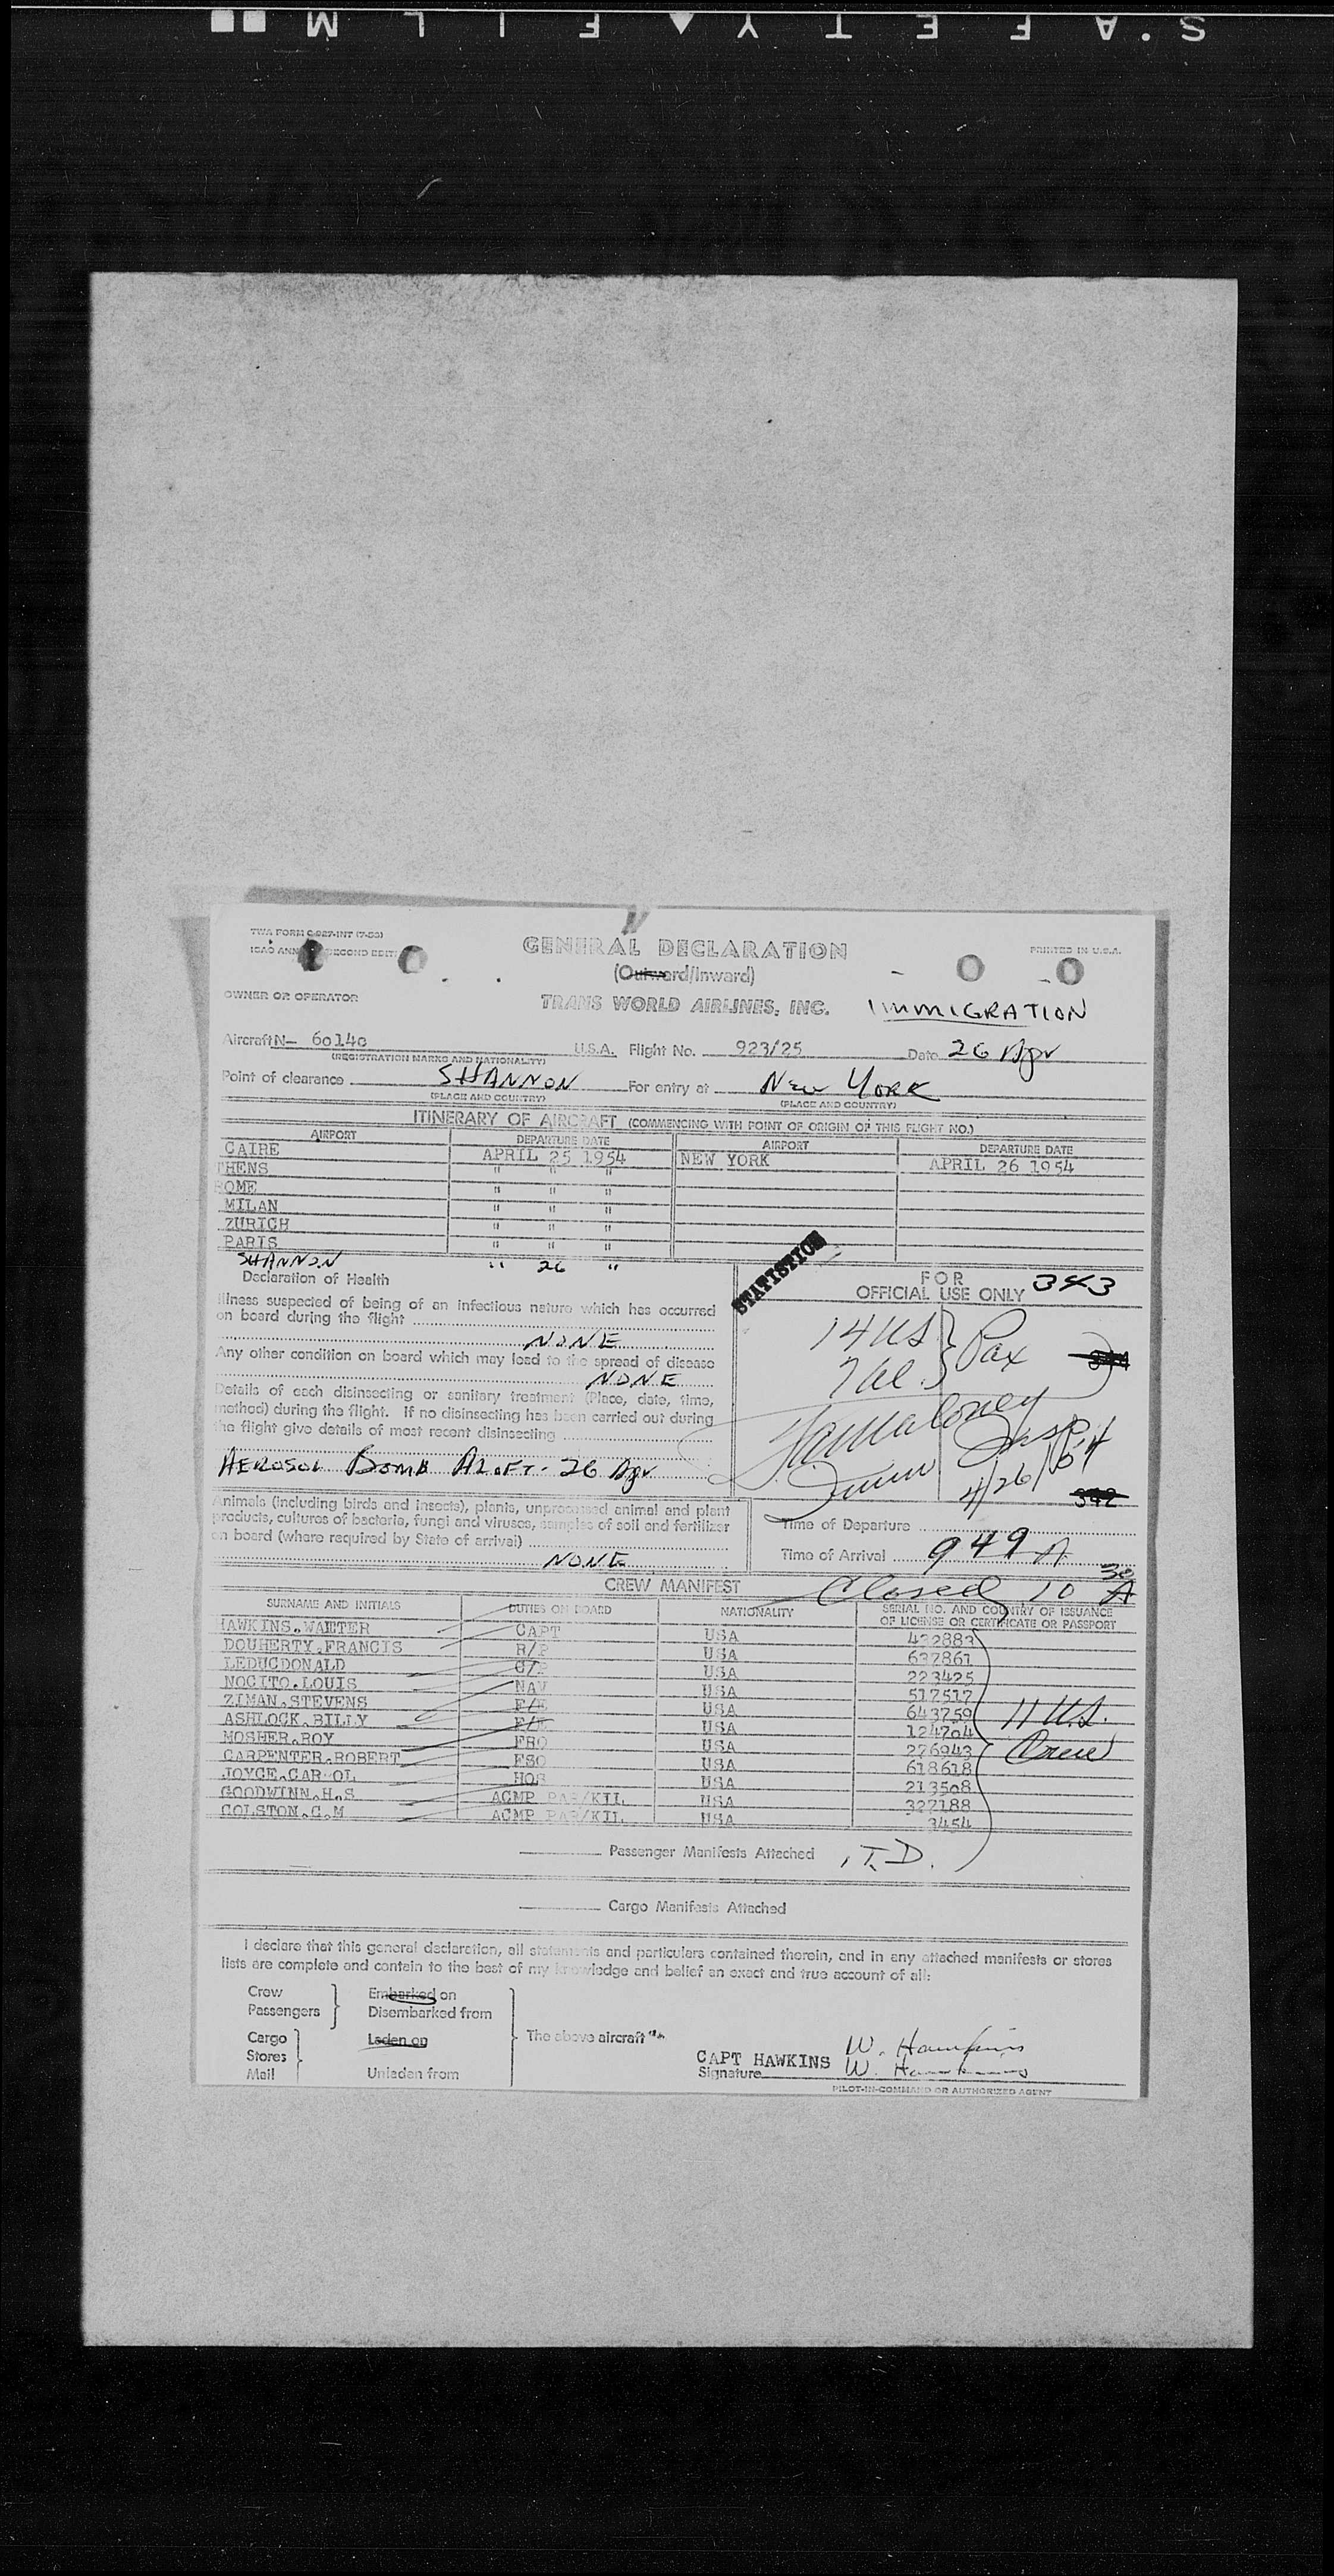 S.A.F.E.T.Y ▲ F I L M
TWA FORM C-927-INT (7-53)
ICAO ANN SECOND EDIT
GENERAL DECLARATION
PRINTED IN U.S.A.
(Outward/Inward)
OWNER OR OPERATOR
TRANS WORLD AIRLINES, INC. IMMIGRATION
Aircraft N— 6014c U.S.A. Flight No. 923/25 Date 26 Apr
(REGISTRATION MARKS AND NATIONALITY)
Point of clearance SHANNON For entry at NEW YORK
(PLACE AND COUNTRY) (PLACE AND COUNTRY)
ITINERARY OF AIRCRAFT (COMMENCING WITH POINT OF ORIGIN OF THIS FLIGHT NO.)
AIRPORT DEPARTURE DATE AIRPORT DEPARTURE DATE
CAIRE APRIL 25 1954 NEW YORK APRIL 26 1954
THENS " " "
ROME " " "
MILAN " " "
ZURICH " " "
PARIS " " "
SHANNON " 26 "
STATISTICS
Declaration of Health
FOR
OFFICIAL USE ONLY 343
Illness suspected of being of an infectious nature which has occurred
on board during the flight
NONE
14 US } Pax
7 al.
Any other condition on board which may lead to the spread of disease
NONE
Details of each disinsecting or sanitary treatment (Place, date, time,
method) during the flight. If no disinsecting has been carried out during
the flight give details of most recent disinsecting
AEROSOL BOMB ALOFT - 26 Apr
Maloney
Insp
4/26/54
342
Animals (including birds and insects), plants, unprocessed animal and plant
products, cultures of bacteria, fungi and viruses, samples of soil and fertilizer
on board (where required by State of arrival)
NONE
Time of Departure
Time of Arrival 949 A
CREW MANIFEST Closed 10 30 A
SURNAME AND INITIALS DUTIES ON BOARD NATIONALITY SERIAL NO. AND COUNTRY OF ISSUANCE
OF LICENSE OR CERTIFICATE OR PASSPORT
HAWKINS.WALTER CAPT USA 432883
DOUHERTY.FRANCIS R/P USA 637861
LEDUCDONALD USA 223425
NOCITO.LOUIS NAV USA 517517
ZIMAN.STEVENS F/E USA 643759
ASHLOCK.BILLY F/E USA 124704
MOSHER.ROY FRO USA 276943
CARPENTER.ROBERT FSO USA 618618
JOYCE.CAROL HOS USA 213508
GOODWINN.H.S ACMP PAR/KIL USA 327188
COLSTON.G.M ACMP PAR/KIL USA 3454
11 U.S.
Crew
Passenger Manifests Attached I.T.D.
Cargo Manifests Attached
I declare that this general declaration, all statements and particulars contained therein, and in any attached manifests or stores
lists are complete and contain to the best of my knowledge and belief an exact and true account of all:
Crew Embarked on
Passengers Disembarked from
Cargo Laden on The above aircraft
Stores
Mail Unladen from
CAPT HAWKINS W. Hawkins
Signature W. Hawkins
PILOT-IN-COMMAND OR AUTHORIZED AGENT